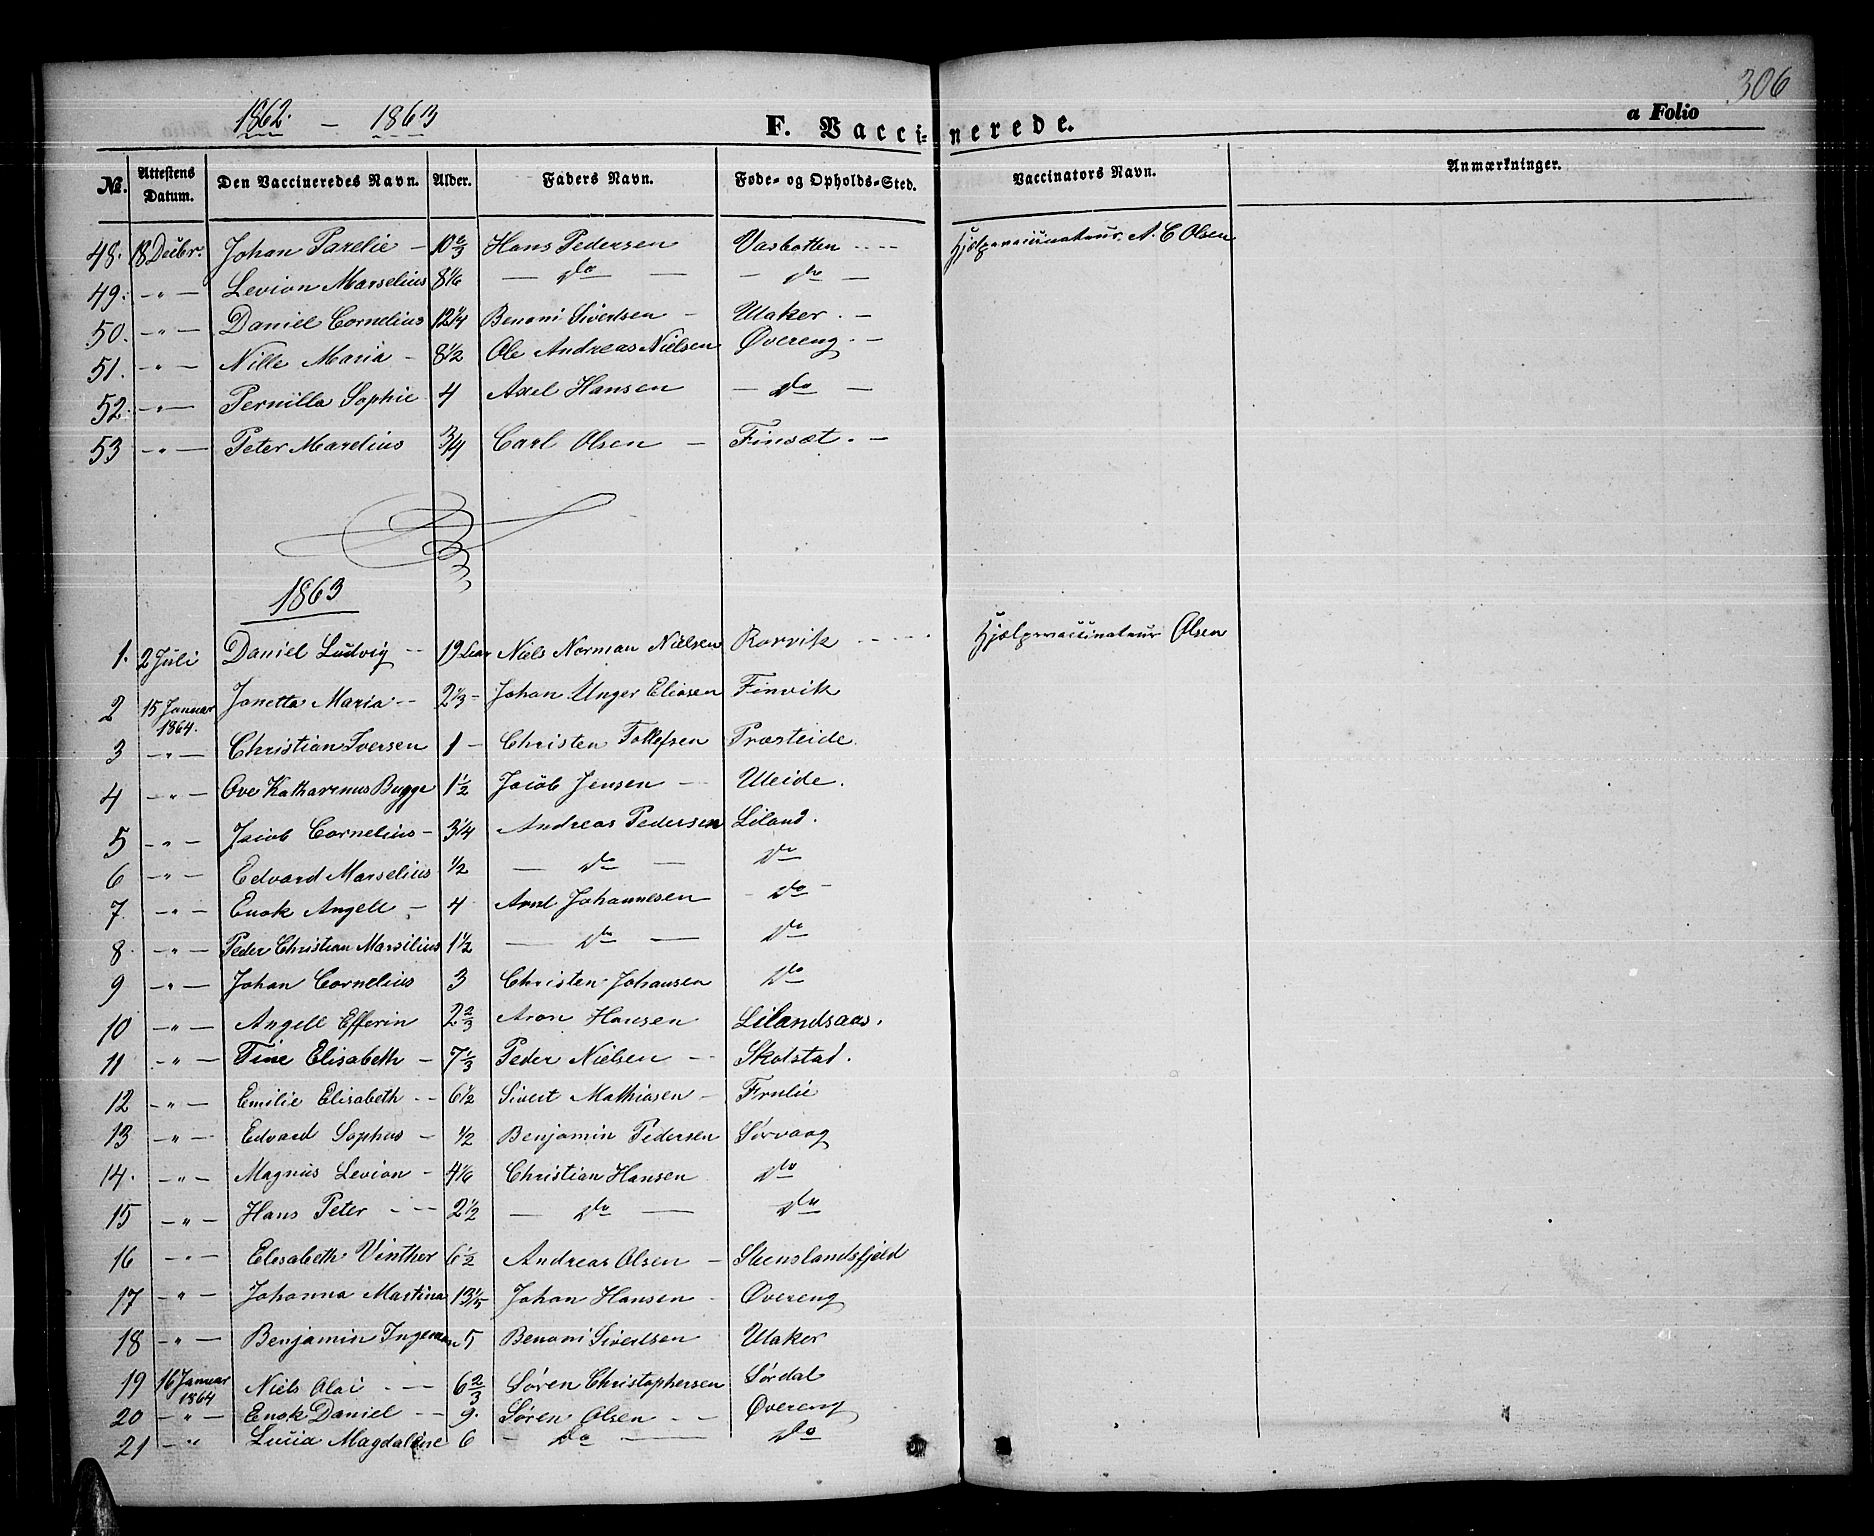 306
1862. – 1863
F. Vaccinerede.
a Folio
No. | Attestens Datum. | Den Vaccineredes Navn. | Alder. | Faders Navn. | Føde- og Opholds-Sted. | Vaccinators Navn. | Anmærkninger.
48. 18 Decbr. Johan Parelie – 10 2/3 Hans Pedersen Vasbotten Hjælpevaccinateur A. C Olsen
49. – " – Levion Marselius 8 1/6 – do – – do –
50. – " – Daniel Cornelius 12 1/4 Benoni Sivertsen – Utaker. –
51. – " – Nille Maria – 8 1/2 Ole Andreas Nielsen Øvereng. –
52. – " – Pernilla Sophie 4 Axel Hansen – do –
53 – " – Peter Marelius 3/4 Carl Olsen – Finsæt. –
1863
1. 2 Juli Daniel Ludvig – 19 Niels Norman Nielsen Rorvik Hjælpevaccinateur Olsen
2 15 Januar 1864. Janetta Maria – 2 1/3 – Johan Unger Eliasen Finvik
3 – " – Christian Iversen 1 – Christen Tollefsen Præsteide.
4 – " – Ove Katharinus Bugge 1 1/2 Jacob Jensen – Uleide.
5 – " – Jacob Cornelius – 3 1/4 Andreas Pedersen Liland.
6 – " – Edvard Marselius 1/2 – do – do
7. – " – Enok Angell – 4 Arnt Johannesen – do –
8. – " – Peder Christian Marsilius 1 1/2 – do – do
9 – " – Johan Cornelius 3 Christen Johansen do
10 – " – Angell Efferin 2 2/3 Aron Hansen Lilandsaas.
11 – " – Tine Elisabeth – 7 1/3 Peder Nielsen – Skolstad.
12 – " – Emilie Elisabeth – 6 1/2 Sivert Mathiasen – Frulie
13 – " – Edvard Sophus – 1/2 Benjamin Pedersen Sørvaag
14. – " – Magnus Levion – 4 1/6 Christian Hansen do
15 – " – Hans Peter – 2 1/2 – do – do
16 – " Elisabeth Vinther 6 1/2 Andreas Olsen – Stenslandsfjeld
17 – " – Johanna Martina 13 1/5 Johan Hansen – Øvereng
18 – " – Benjamin Ingeman 5 Benoni Sivertsen Utaker
19 16 Januar 1864 Niels Olai – 6 2/3 Søren Christophersen Sørdal
20 – " – Enok Daniel – 9. Søren Olsen – Øvereng
21 – " Lucia Magdalene 6 – do – do